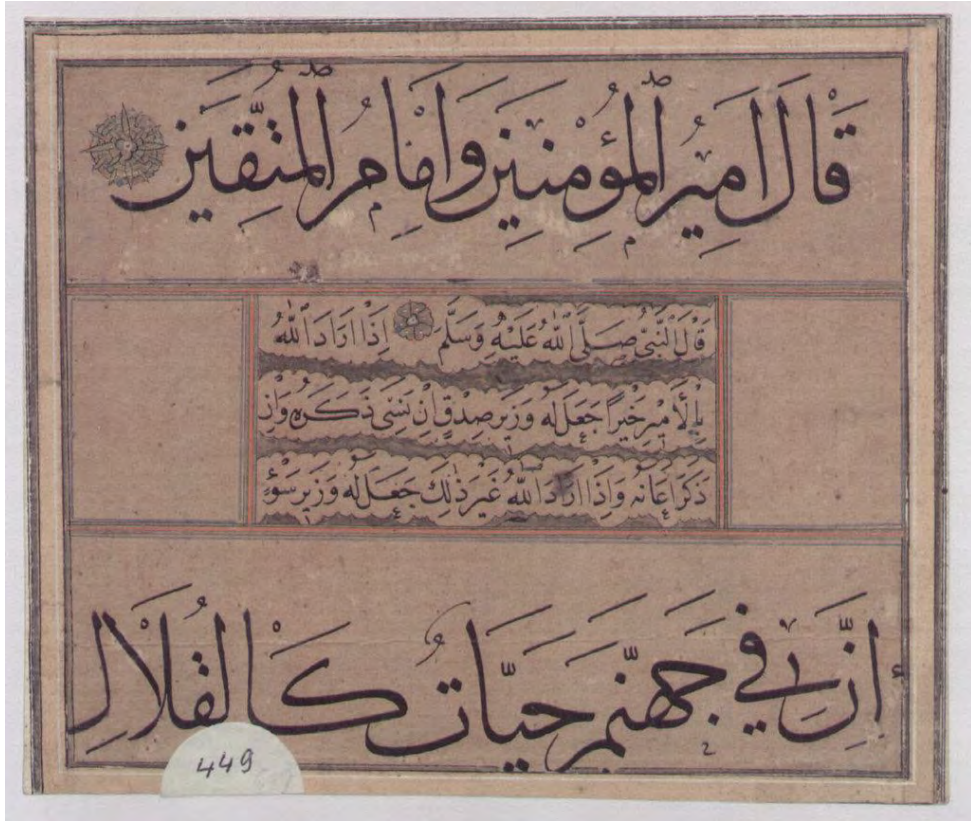 قَالَ اَمِيرُ الْمُؤْمِنِينَ وَاِمَامُ الْمُتَّقِينَ
قَالَ النَّبِيُّ صَلَّى اللّٰهُ عَلَيْهِ وَسَلَّمَ اِذَا اَرَادَ اللّٰهُ
بِالْاَمِيرِ خَيْرًا جَعَلَ لَهُ وَزِيرَ صِدْقٍ اِنْ نَسِيَ ذَكَرَهُ وَاِنْ
ذَكَرَ اَعَانَهُ وَاِذَا اَرَادَ اللّٰهُ غَيْرَ ذٰلِكَ جَعَلَ لَهُ وَزِيرَ سُوْءٍ
اِنَّ فِي جَهَنَّمَ حَيَّاتٌ كَالْقُلَالِ
449